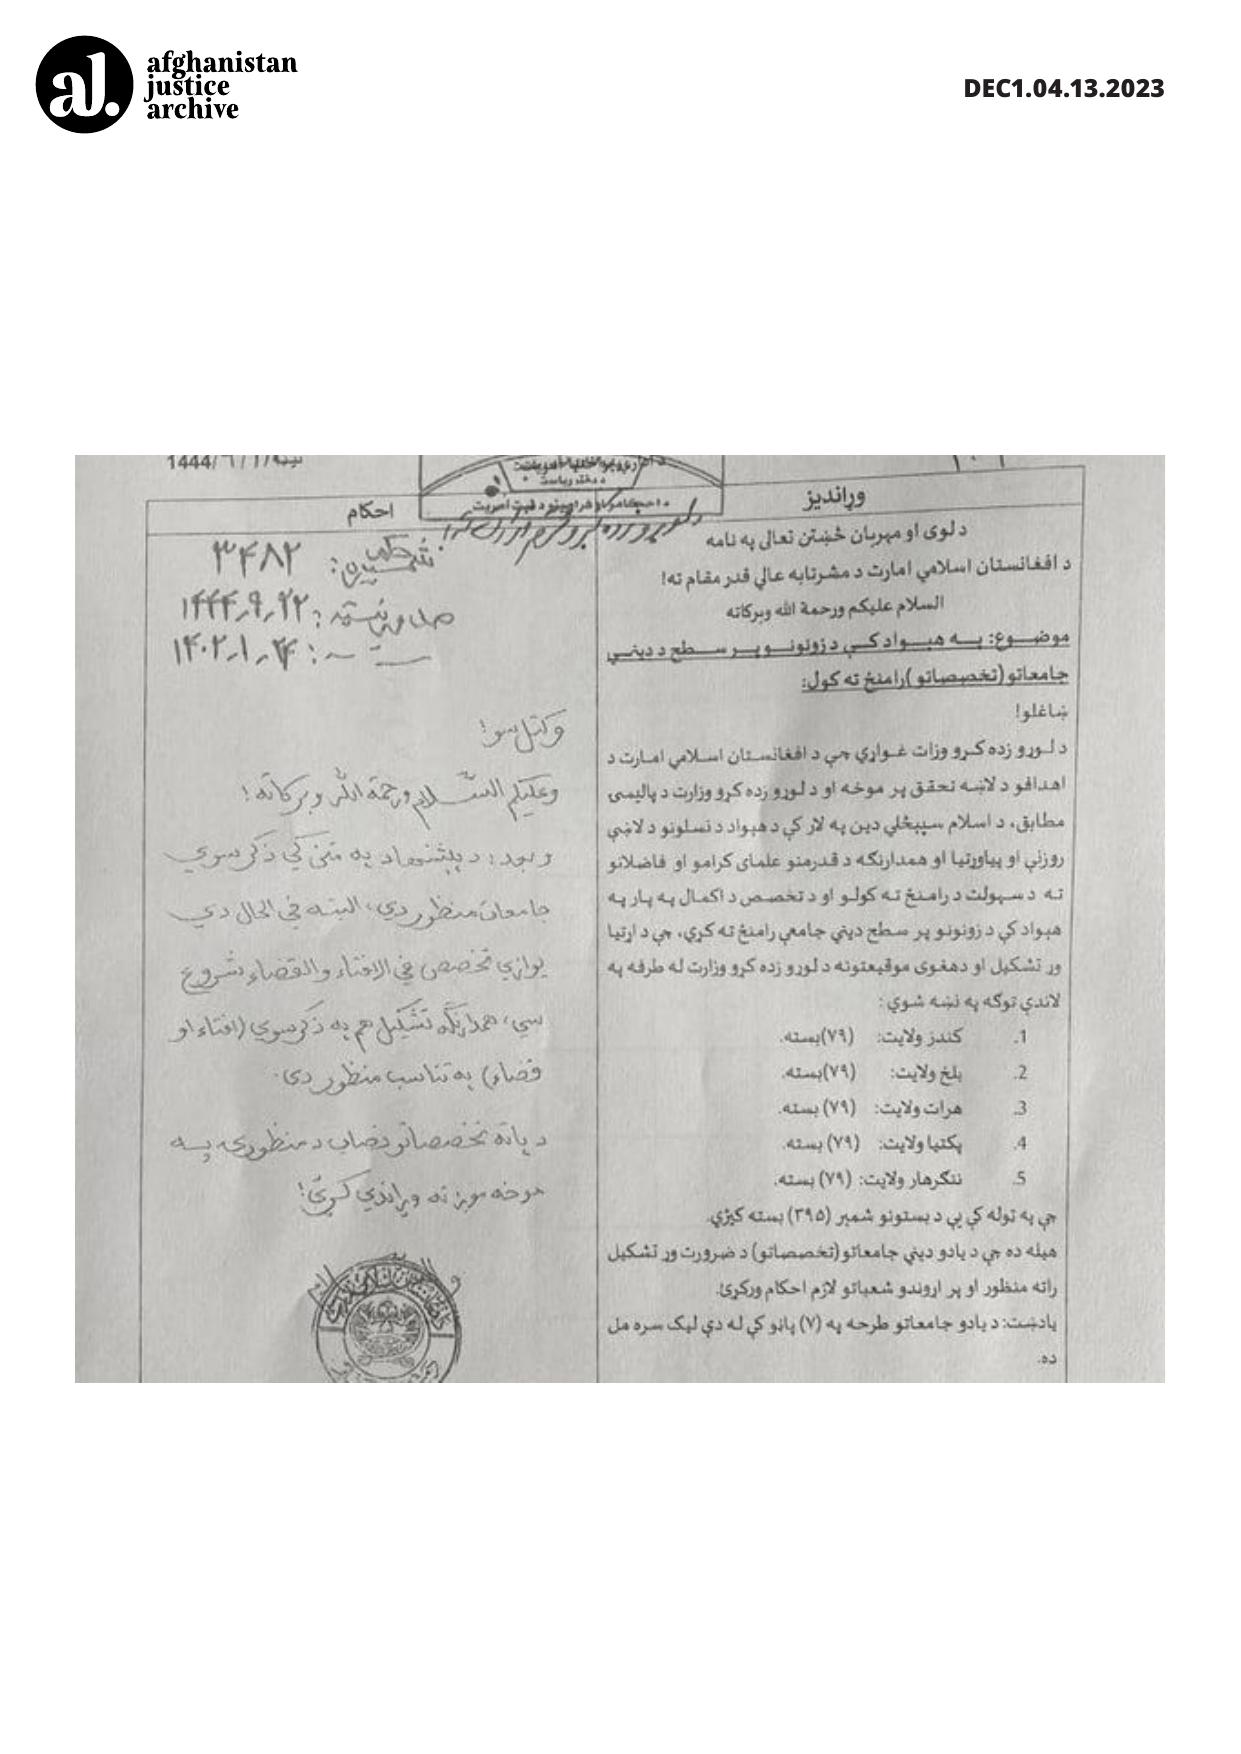 afghanistan
justice
archive
DEC1.04.13.2023
وړاندیز
د لوی او مهربان څښتن تعالی په نامه
د افغانستان اسلامي امارت د مشرتابه عالي قدر مقام ته!
السلام علیکم ورحمة الله وبرکاته
موضـوع: پـه هیـواد کـې د زونونـو پـر سـطح د دینـي
جامعاتو(تخصصاتو)رامنځ ته کول:
ښاغلو!
د لـوړو زده کـړو وزات غـواړي چې د افغانسـتان اسـلامي امـارت د
اهدافو د لاښه تحقق پر موخه او د لوړو زده کړو وزارت د پالیسی
مطابق، د اسلام سپېڅلي دین په لار کې د هېواد د نسلونو د لاښې
روزنې او پیاوړتیا او همدارنګه د قدرمنو علمای کرامو او فاضلانو
تـه د سـهولت د رامنځ تـه کولـو او د تخصـص د اکمال په پار په
هېواد کې د زونونو پر سطح دیني جامعې رامنځ ته کړي، چې د اړتیا
وړ تشکیل او دهغوی موقیعتونه د لوړو زده کړو وزارت له طرفه په
لاندې توګه په نښه شوي :
1. کندز ولایت: (۷۹)بسته.
2. بلخ ولایت: (۷۹)بسته.
3. هرات ولایت: (۷۹) بسته.
4. پکتیا ولایت: (۷۹) بسته.
5. ننګرهار ولایت: (۷۹) بسته.
چې په توله کې یې د بستونو شمېر (۳۹۵) بسته کېږي.
هیله ده چې د یادو دیني جامعاتو(تخصصاتو) د ضرورت وړ تشکیل
راته منظور او پر اړوندو شعباتو لازم احکام ورکړئ.
یادښت: د یادو جامعاتو طرحه په (۷) پاڼو کې له دې لیک سره مل
ده.
احکام
د احکامو او فرامینو د ثبت آمریت
۳۴۸۲
۱۴۴۴٫۹٫۲۲
۱۴۰۲٫۱٫۲۴
وکتل سو!
وعلیکم السّلام ورحمة الله وبرکاته!
وبعد: د پېشنهاد په متن کې ذکر سوي
جامعات منظور دي، البته في الحال دې
یوازې تخصص في الافتاء والقضاء شروع
سي، همدارنګه تشکیل هم په ذکر سوي (افتاء او
قضاء) په تناسب منظور دی.
د پاته تخصصاتو نصاب د منظورۍ پـه
موخه موږ ته وړاندې کړئ!